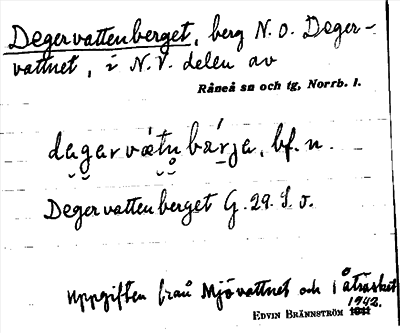 Degervattenberget, berg N.O. Deger-
vattnet, i N.V. delen av
Råneå sn och tg, Norrb. l.
dagarvátn bárja, bf. n.
Degervattenberget G. 29. S. v.
Uppgiften från Mjövattnet och
Åträsket
1942.
EDVIN BRÄNNSTRÖM 1941